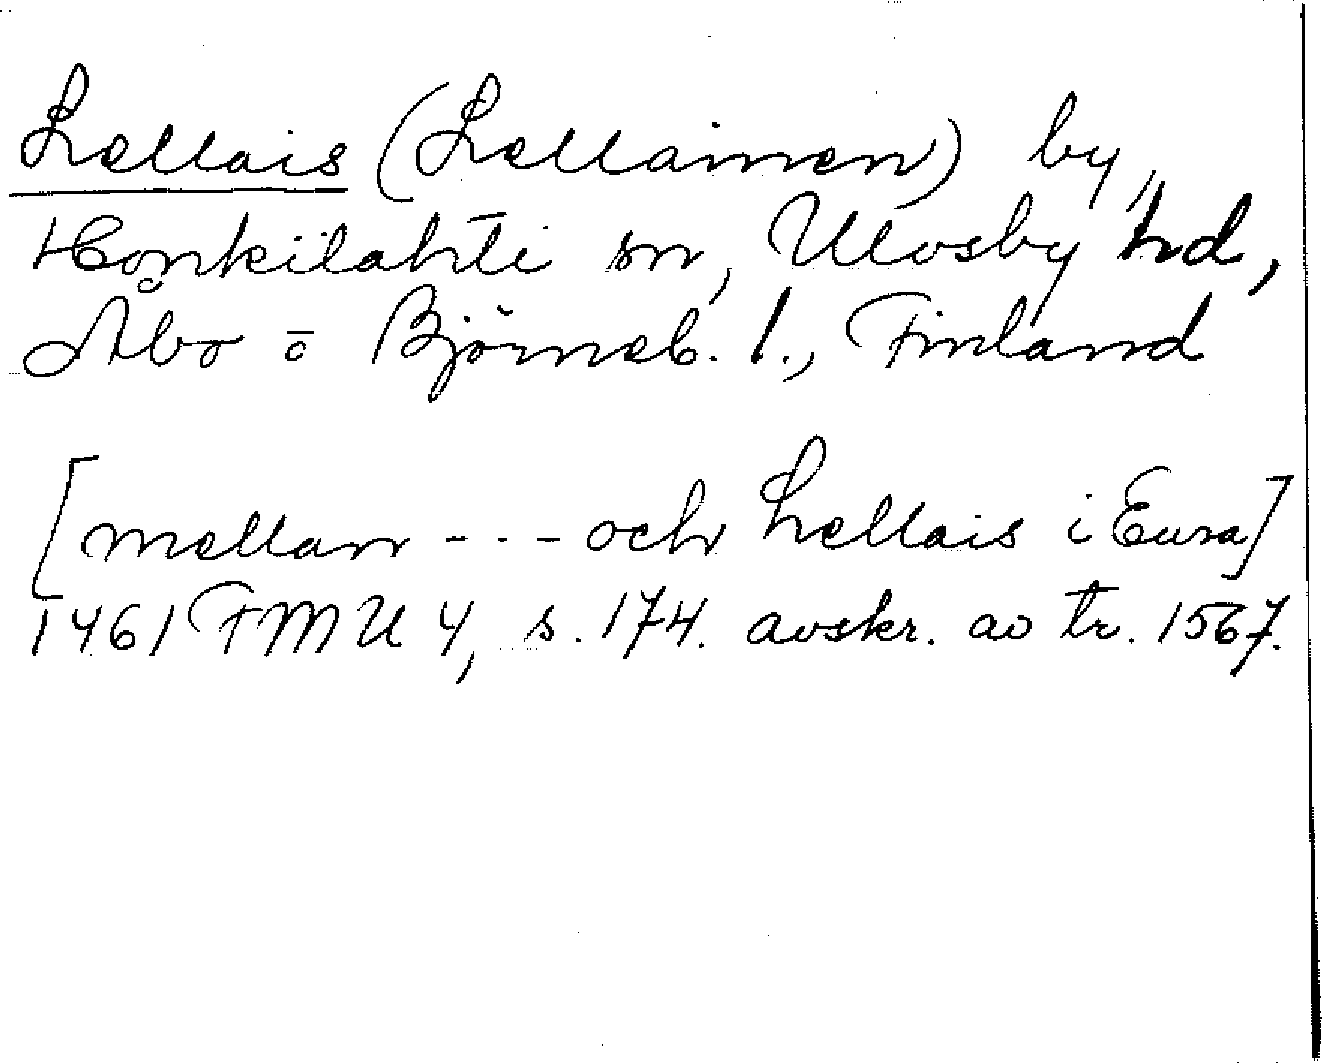 Lellais (Lellainen) by,
Honkilahti sn, Ulvsby hd,
Åbo o Björneb. l., Finland
[mellan - - - och Lellais i Eura]
1461 FMU 4, s. 174. avskr. av tr. 1567.